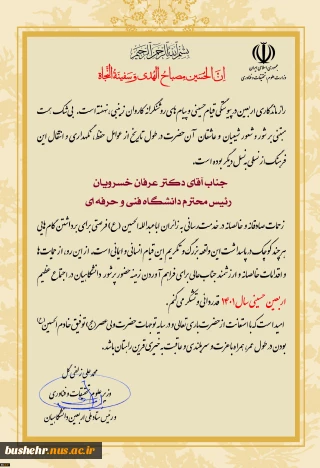 بسم الله الرحمن الرحیم
جمهوری اسلامی ایران
وزارت علوم، تحقیقات و فناوری
اِنَّ الحُسَین مِصباحُ الهُدی وَ سَفینَةُ النَّجاة
راز ماندگاری اربعین در پیوستگی قیام حسینی و پیام های روشنگرانه کاروان زینبی، نهفته است. بی شک سنت
مبتنی بر شور و شعور شیعیان و عاشقان آن حضرت در طول تاریخ از عوامل حفظ، نگهداری و انتقال این
فرهنگ از نسلی به نسل دیگر بوده است.
جناب آقای دکتر عرفان خسرویان
رئیس محترم دانشگاه فنی و حرفه ای
زحمات صادقانه و خالصانه در خدمت رسانی به زائران اباعبدالله الحسین (ع) فرصتی برای برداشتن گام هایی
هر چند کوچک در پاسداشت این واقعه بزرگ و تکریم این قیام انسانی و ایمانی است. از این رو، از حمایت ها
و اقدامات خالصانه و ارزشمند جنابعالی برای فراهم آوردن زمینه حضور پرشور دانشگاهیان در اجتماع عظیم
اربعین حسینی سال ۱۴۰۱ قدردانی و تشکر می کنم.
امید است که با استعانت از حضرت باری تعالی و در سایه توجهات حضرت ولی عصر (عج) توفیق خادم الحسین (ع)
بودن در طول عمر، همراه با عزت و سربلندی و عاقبت به خیری قرین راهتان باشد.
محمد علی زلفی گل
وزیر علوم، تحقیقات و فناوری
و رئیس ستاد ملی اربعین دانشگاهیان
bushehr.nus.ac.ir